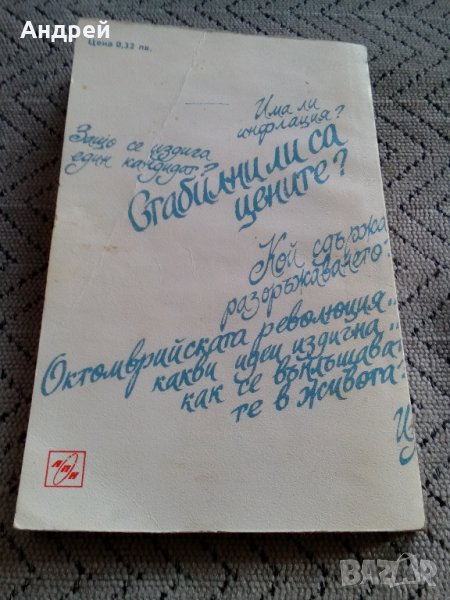 Андрей
Цена 0,12 лв.
Има ли
инфлация?
Защо се издига
един кандидат?
Стабилни ли са
цените?
Кой сдържа
разоръжаването?
Октомврийската революция..
какви идеи издигна..
как се въплъщават
те в живота?
Из
АПН
BAZAR